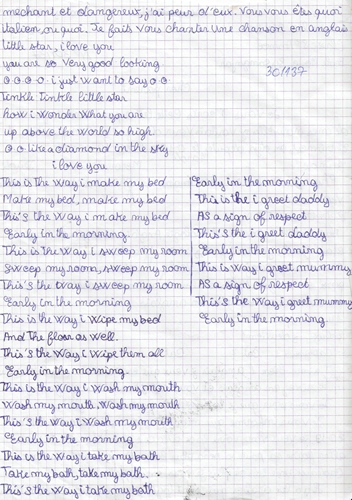 mechant et dangereux, j'ai peur d'eux. Vous vous êtes quoi
italien, ou quoi. Je fais vous chanter une chanson en anglais
little star, i love you
you are so very good looking
o o o o i just want to say o o
30/137
Tinkle Tinkle little star
how i wonder what you are
up above the world so high
o o like a diamond in the sky
i love you
This is the way i make my bed
Make my bed, make my bed
This's the way i make my bed
Early in the morning.
This is the way i sweep my room
sweep my room, sweep my room
This's the way i sweep my room
Early in the morning
This is the way i wipe my bed
And The floor as well.
This's the way i wipe them all
Early in the morning.
This is the way i wash my mouth
wash my mouth. wash my mouth
This's the way i wash my mouth
Early in the morning
This is the way i take my bath
Take my bath, take my bath.
This's the way i take my bath
Early in the morning
This is the i greet daddy
As a sign of respect
This's the i greet daddy
Early in the morning
This is way i greet mummy
As a sign of respect
This's the way i greet mummy
Early in the morning